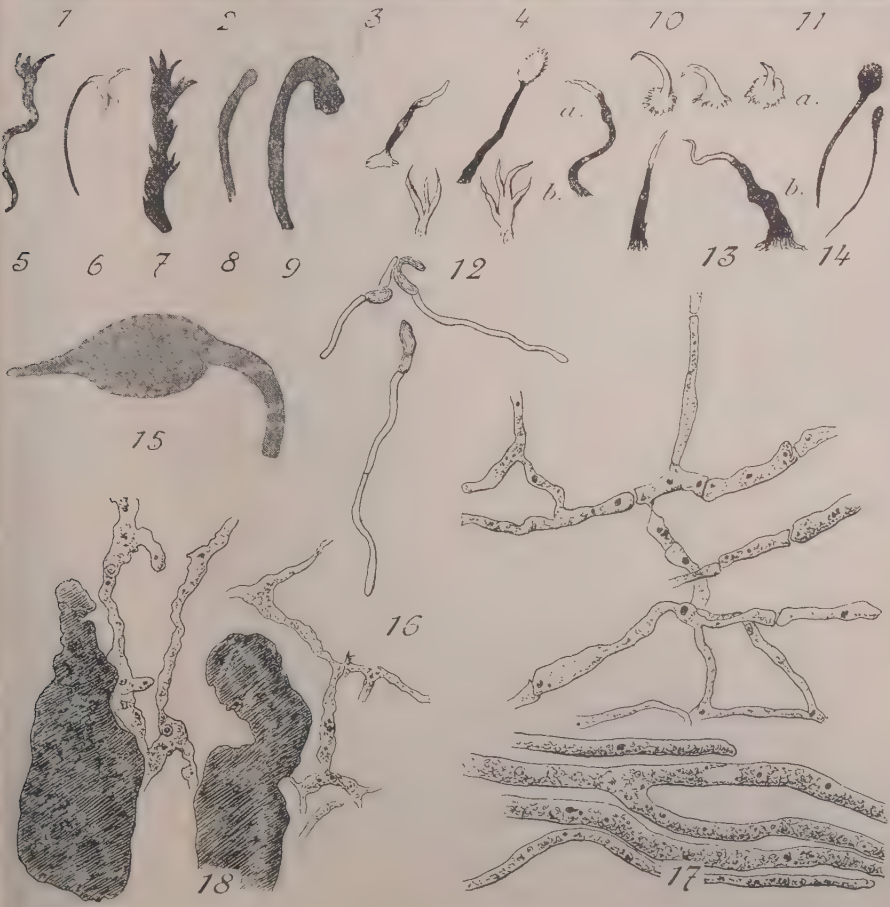 1 2 3 4 10 11
a. a.
b. b.
5 6 7 8 9 12 13 14
15
16
18 17